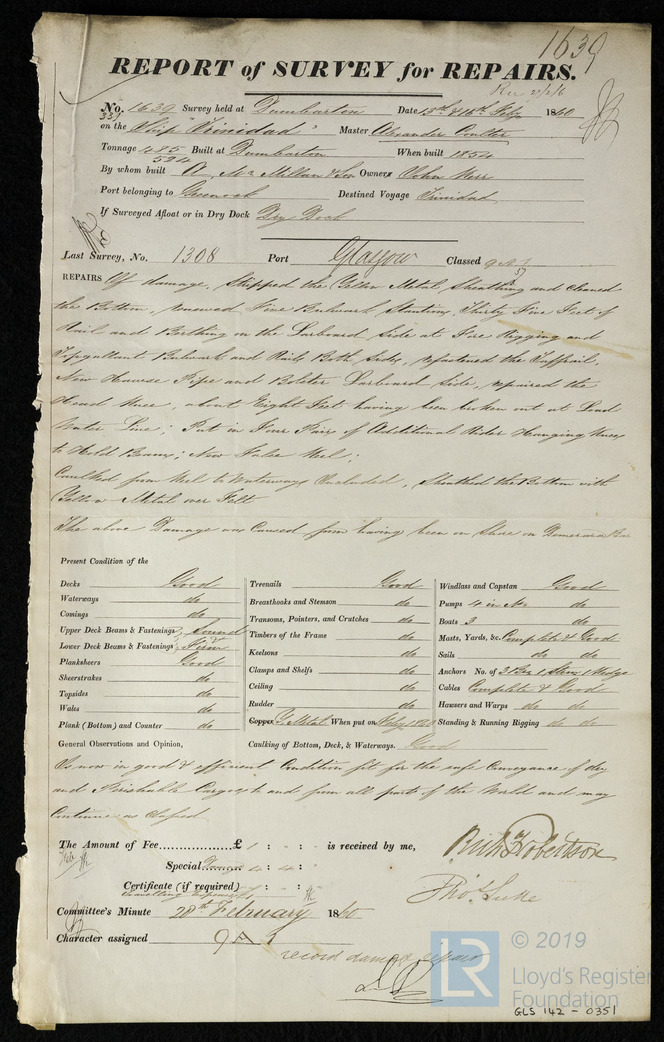 1639
REPORT of SURVEY for REPAIRS.
No. 1639 Survey held at Dumbarton Date 13th & 16th Feby 1860
on the Ship "Trinidad" Master Alexander Coulter
Tonnage 485 Built at Dumbarton When built 1854
524
By whom built A. McMillan & Son Owners John Kerr
Port belonging to Greenock Destined Voyage Trinidad
If Surveyed Afloat or in Dry Dock Dry Dock
Last Survey, No. 1308 Port Glasgow Classed 9 A 1
57
REPAIRS Of damage, Stripped the Yellow Metal Sheathing and cleaned
the Bottom, renewed Five Bulwark Stantions, Thirty Five Feet of
Rail and Berthing on the Larboard Side at Fore Rigging and
Topgallant Bulwark and Rails Both Sides, refastened the Taffrail,
New Hawse Pipe and Bolster Larboard Side, repaired the
Head Knee, about Eight Feet having been broken out at Load
Water Line; Put in Four Pair of Additional Rider Hanging Knees
to Hold Beams; New False Keel;
Caulked from Keel to Waterways Included, Sheathed the Bottom with
Yellow Metal over Felt
The above Damage was Caused from having been on Shore on Demerara Bar
Present Condition of the
Decks Good
Waterways do
Comings do
Upper Deck Beams & Fastenings Sound
Lower Deck Beams & Fastenings Firm
Planksheers Good
Sheerstrakes do
Topsides do
Wales do
Plank (Bottom) and Counter do
Treenails Good
Breasthooks and Stemson do
Transoms, Pointers, and Crutches do
Timbers of the Frame do
Keelsons do
Clamps and Shelfs do
Ceiling do
Rudder do
Copper Y. Metal When put on Feby 1860
Caulking of Bottom, Deck, & Waterways. Good
Windlass and Capstan Good
Pumps 4 in No. do
Boats 3 do
Masts, Yards, &c. Complete & Good
Sails do do
Anchors No. of 3 Br 1 Strm 1 Kedge
Cables Complete & Good
Hawsers and Warps do do
Standing & Running Rigging do do
General Observations and Opinion,
Is now in good & efficient Condition fit for the safe Conveyance of dry
and Perishable Cargoes to and from all parts of the World and may
Continue as Classed
The Amount of Fee £ 1 : - : - is received by me,
Special Damage 4 : 4 : -
Certificate (if required) : - :
Travelling Expenses
Robt. Robertson
Thos. Luke
Committee's Minute 28th February 1860
Character assigned 9 A 1
record damage repairs
© 2019
LR Lloyd's Register
Foundation
GLS 142 - 0351